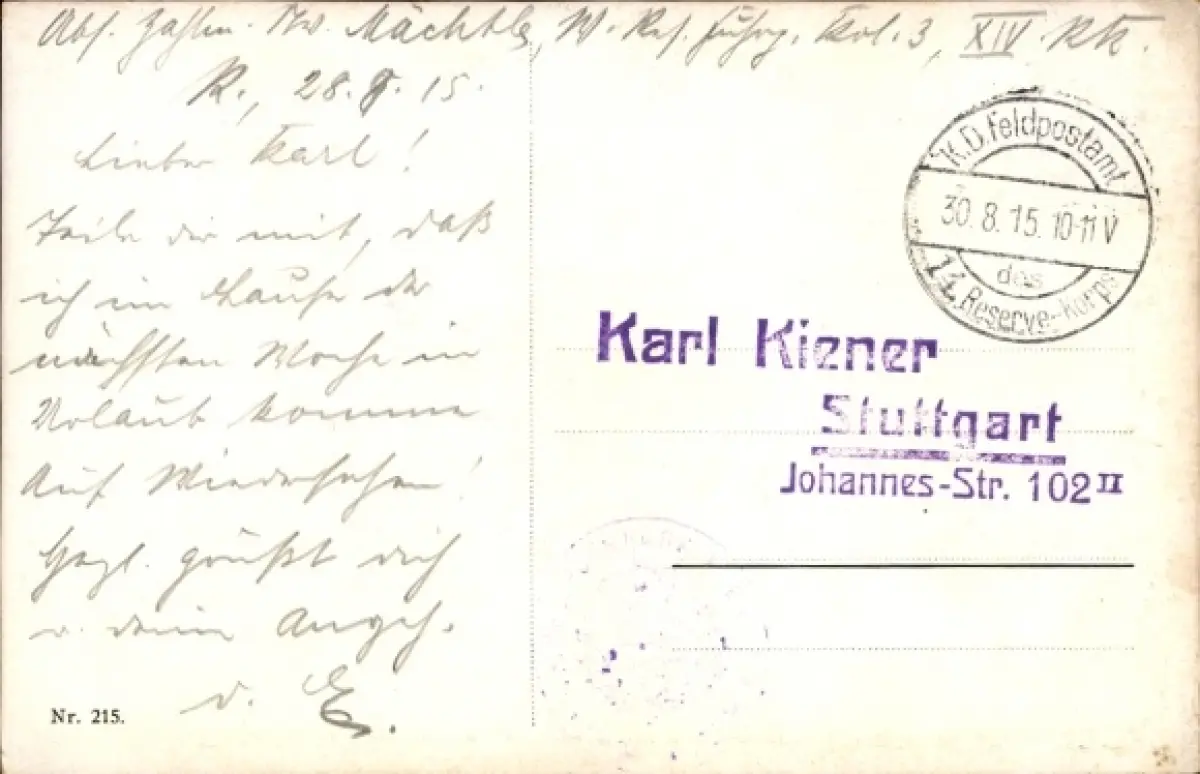 Abs. Zahlm. Mächtle, W. Res. Fuhrp. Kol. 3, XIV. RK.
R., 28. 8. 15.
Lieber Karl!
Teile dir mit, daß
ich im Laufe der
nächsten Woche in
Urlaub komme
Auf Wiedersehen!
Herzl. grüßt dich
u. deine Angeh.
d. E.
Nr. 215.
K.D. Feldpostamt
30.8.15. 10-11 V
des
14. Reserve-Korps
Karl Kiener
Stuttgart
Johannes-Str. 102 II